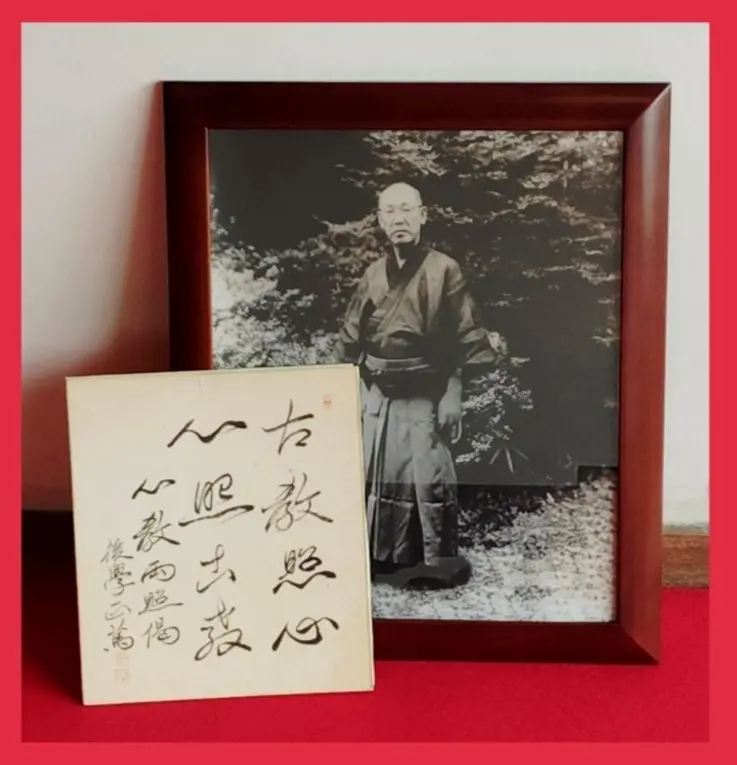 古教照心
心照古教
心教両照偈
後學正篤